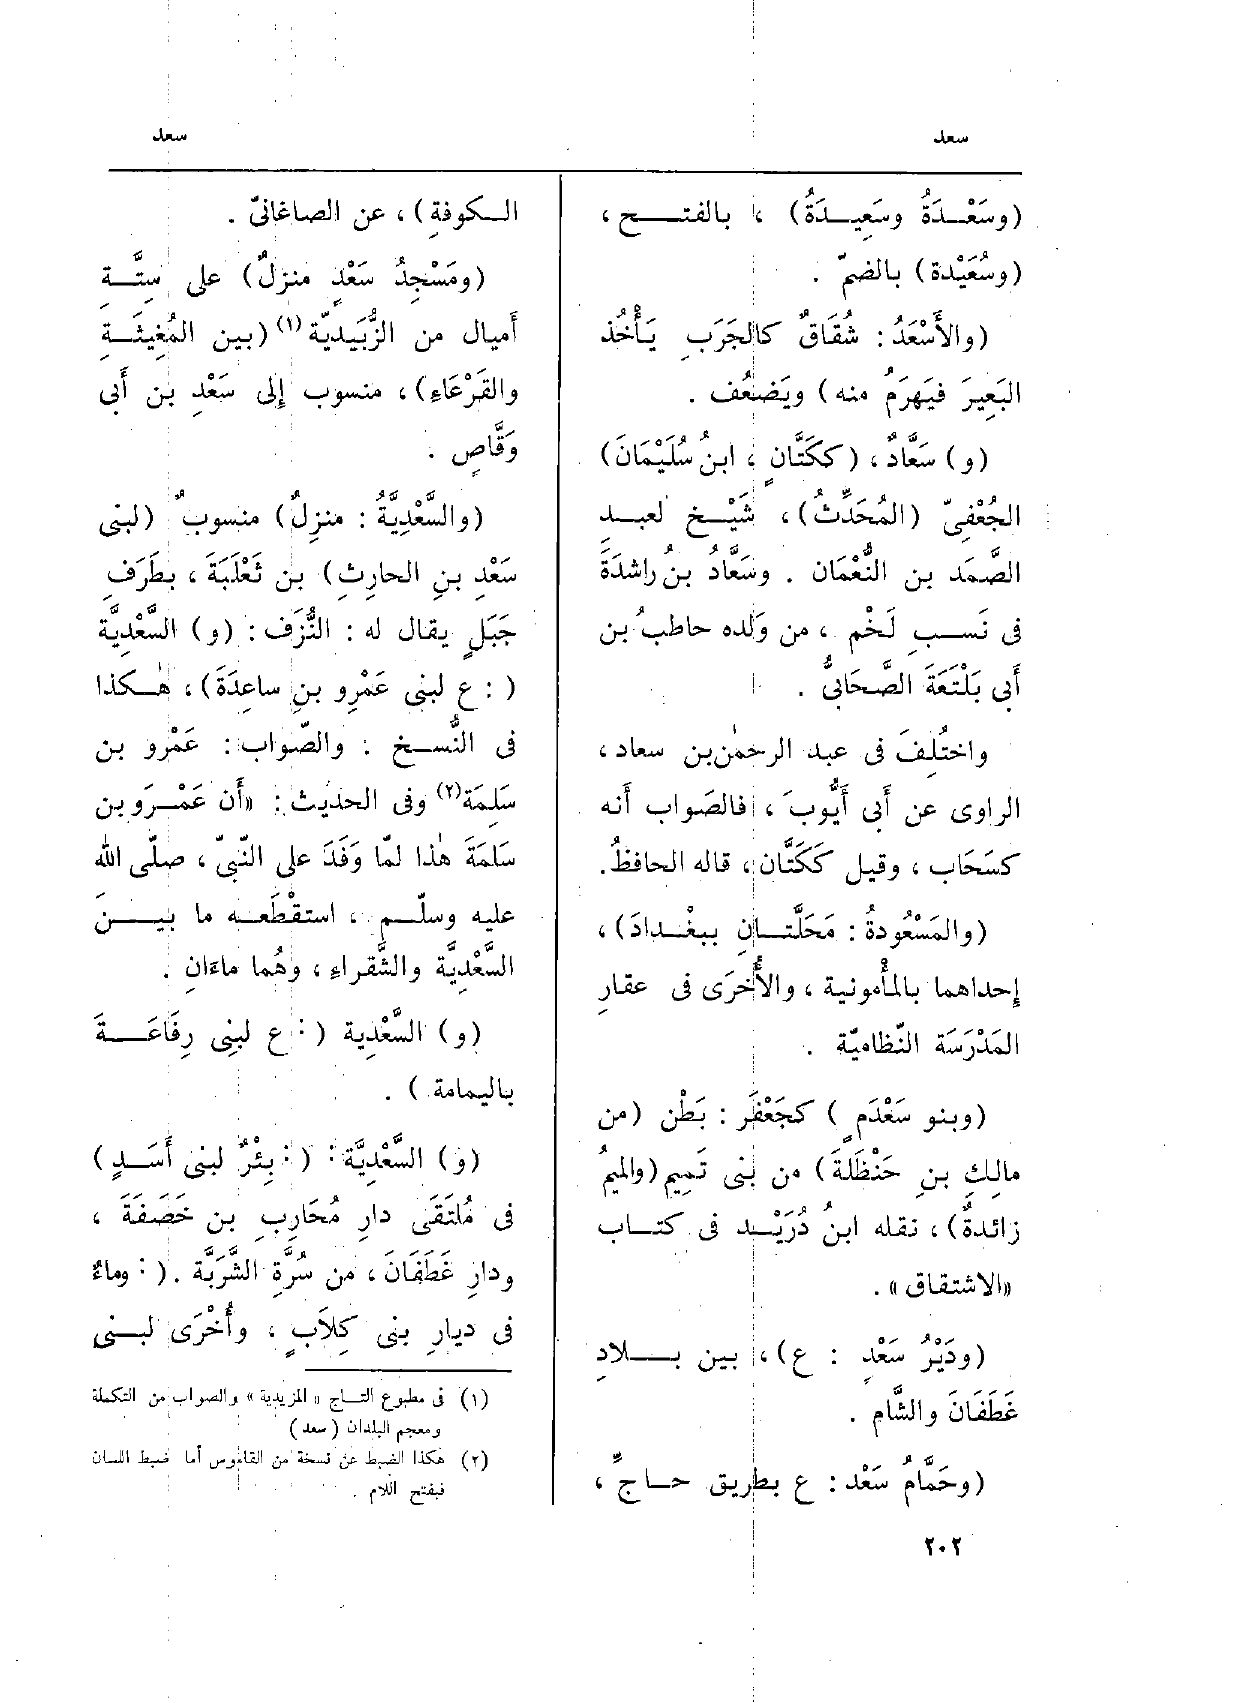 سعد
سعد
(وسَعْــدَةُ وسَعِيــدَةُ) ، بالفتــح ،
(وسُعَيْدة) بالضمّ .
(والأَسْعَدُ : شُقَاقٌ كالجَرَبِ يَأْخُذ
البَعِيرَ فيَهرَمُ منه) ويَضعُف .
(و) سَعَّادٌ ، (ككَتَّانٍ ، ابنُ سُلَيْمَانَ)
الجُعْفِىّ (المُحَدِّثُ) ، شَيْــخ لعبــدِ
الصَّمَد بن النُّعْمَان . وسَعَّادُ بن راشدَةَ
فى نَســبِ لَخْم ، من وَلده حاطبُ بن
أَبى بَلْتَعَةَ الصَّحَابىُّ .
واختُلِفَ فى عبد الرحمٰن بن سعاد ،
الراوى عن أَبى أَيُّوبَ ، فالصَّواب أَنه
كسَحَاب ، وقيل كَكَتَّان ، قاله الحافظُ .
(والمَسْعُودةُ : مَحَلَّتــانِ ببغْــدادَ) ،
إِحداهما بالمأْمونية ، والأُخرَى فى عقارِ
المَدْرَسَة النِّظاميّة .
(وبنو سَعْدَمٍ) كجَعْفَر : بَطْن (من
مالِكِ بنِ حَنْظَلَةَ) من بَنى تَمِيم (والميمُ
زائدةٌ) ، نقله ابنُ دُرَيْــد فى كتــاب
«الاشتقاق» .
(ودَيْرُ سَعْدٍ : ع) ، بين بــلادِ
غَطَفَانَ والشَّام .
(وحَمَّامُ سَعْد : ع بطريق حــاجِّ ،
الــكوفةِ) ، عن الصاغانىّ .
(ومَسْجِدُ سَعْدٍ منزلٌ) على سِتَّــةِ
أَميال من الزُّبَيْديّة (١) (بين المُغِيثَــةِ
والقَرْعَاءِ) ، منسوب إِلى سَعْدِ بن أَبى
وَقَّاصٍ .
(والسَّعْدِيَّةُ : منزلٌ) منسوبٌ (لبنى
سَعْدِ بنِ الحارِثِ) بن ثَعْلَبَةَ ، بطَرَفِ
جَبَلٍ يقال له : النُّزَف : (و) السَّعْدِيَّة
( : ع لبنى عَمْرِو بنِ ساعِدَةَ) ، هٰــكذا
فى النُّســخ : والصّواب : عَمْرو بن
سَلِمَة (٢) وفى الحديث : «أَن عَمْــرَو بن
سَلِمَةَ هٰذا لمّا وَفَدَ على النَّبىّ ، صلّى الله
عليه وسلّــم ، استقْطَعــه ما بيــنَ
السَّعْدِيَّة والشَّقراءِ ، وهُما ماءَانِ .
(و) السَّعْدِية ( : ع لبنِى رِفَاعَــةَ
باليمامة ) .
(و) السَّعْديَّة : ( : بِئْرٌ لبنى أَسَــدٍ)
فى مُلتَقَى دارِ مُحَارِبِ بن خَصَفَةَ ،
ودارِ غَطَفَانَ ، من سُرَّةِ الشَّرَبَّة . ( : وماءٌ
فى ديارِ بنى كِلَابٍ ، وأُخْرَى لبــنى
(١) فى مطبوع التــاج « المزيدية » والصواب من التكملة
ومعجم البلدان ( سعد )
(٢) هكذا الضبط عن نسخة من القاموس أما ضبط اللسان
فبفتح اللام .
٢٠٢